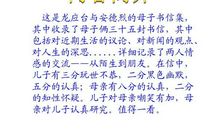 这是龙应台与安德烈的母子书信集，
其中收录了母子俩三十五封书信，其中
包括对近期生活的议论、对新闻的观点、
对人生的深思……详细记录了两人情
感的交流——从陌生到朋友。在信中，
儿子有三分玩世不恭、二分黑色幽默，
五分的认真；母亲有八分的认真，二分
的知性怀疑。儿子对母亲嘲笑有加，母
亲对儿子认真研究。值得一看。